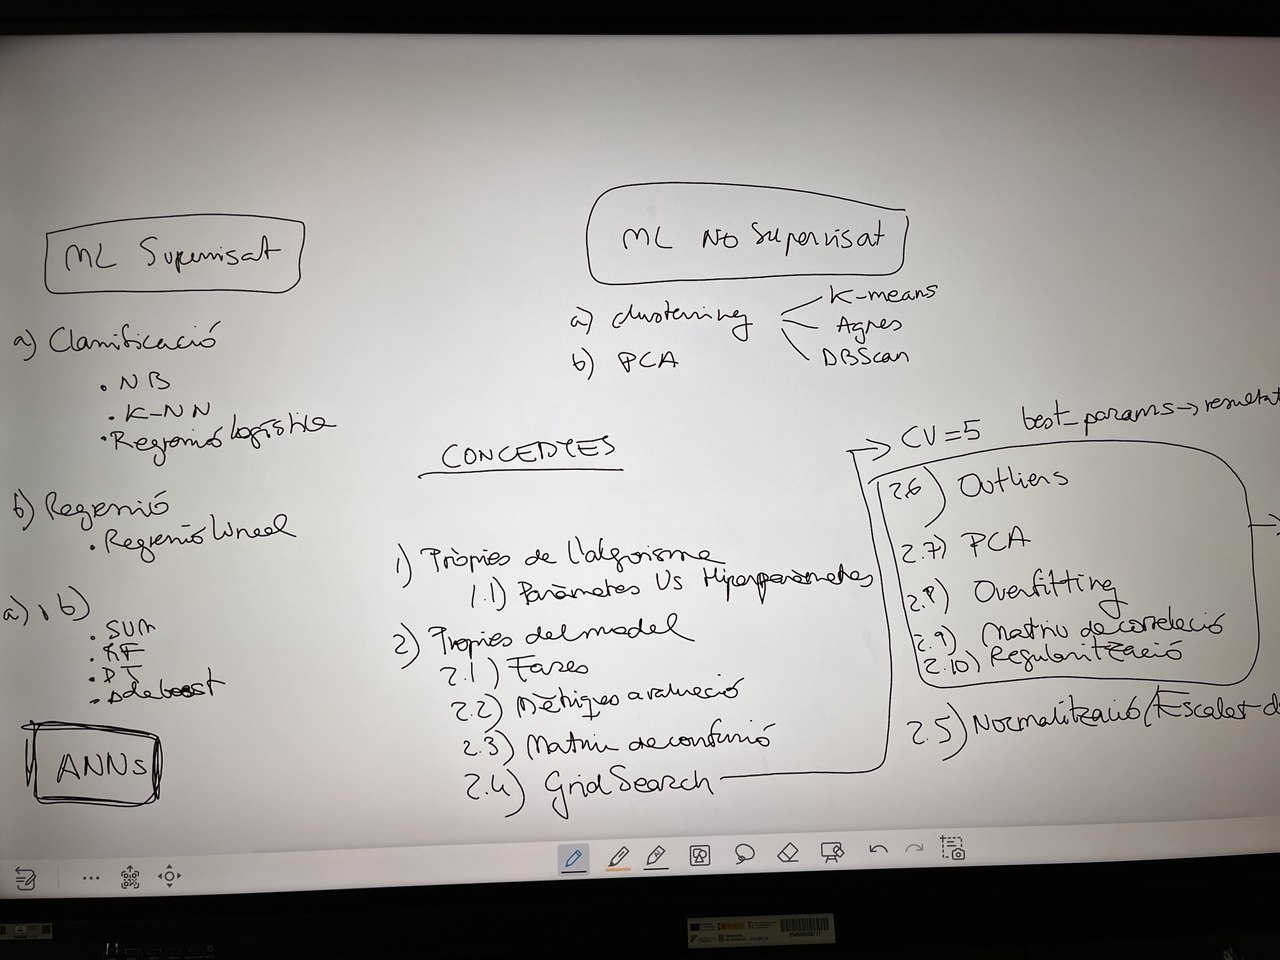 ML Supervisat
a) Classificació
• NB
• K-NN
• Regressió logística
b) Regressió
• Regressió Lineal
a), b)
• SVM
• RF
• DT
• Adaboost
ANNs
ML No Supervisat
a) clustering
K-means
Agres
DBScan
b) PCA
CONCEPTES
1) Pròpies de l'algorisme
1.1) Paràmetres Vs Hiperparàmetres
2) Propies del model
2.1) Fases
2.2) Mètriques avaluació
2.3) Matriu de confusió
2.4) Grid Search
CV=5 best_params→resultat
2.6) Outliers
2.7) PCA
2.8) Overfitting
2.9) Matriu de correlació
2.10) Regularització
2.5) Normalització/Escalat